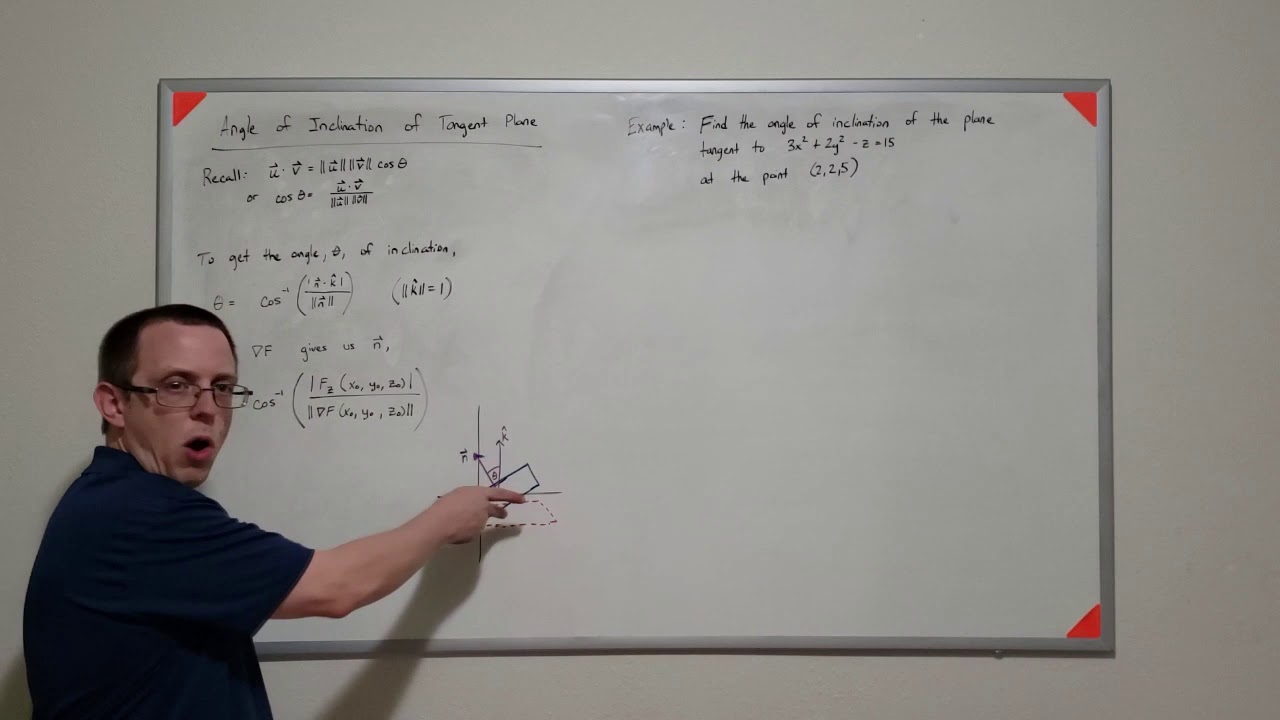 Angle of Inclination of Tangent Plane
Recall: u⃗ · v⃗ = ||u⃗|| ||v⃗|| cos θ
or cos θ = u⃗ · v⃗ / ||u⃗|| ||v⃗||
To get the angle, θ, of inclination,
θ = cos⁻¹ ( |n⃗ · k̂| / ||n⃗|| ) (||k̂|| = 1)
∇F gives us n⃗,
cos⁻¹ ( |F_z (x₀, y₀, z₀)| / ||∇F (x₀, y₀, z₀)|| )
k̂
n⃗
θ
Example: Find the angle of inclination of the plane
tangent to 3x² + 2y² - z = 15
at the point (2,2,5)